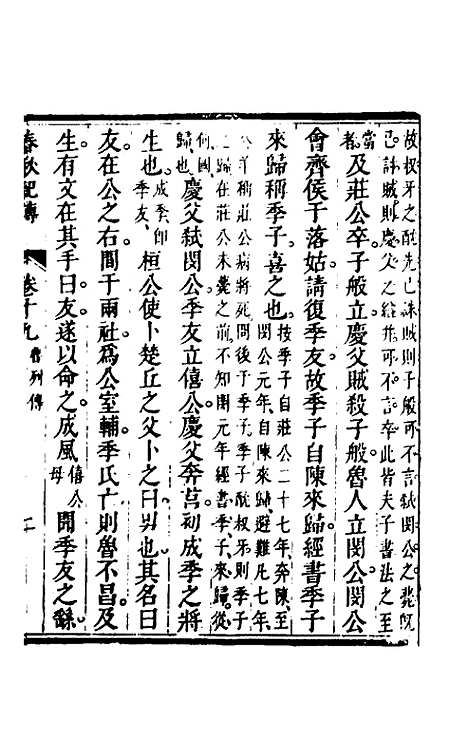 故叔牙之酖先已誅賊則子般可不言弒閔公之薨既
已誅賊則慶父之縊并可不言卒此皆夫子書法之至
當者及莊公卒子般立慶父賊殺子般魯人立閔公閔公
會齊侯于落姑請復季友故季子自陳來歸經書季子
來歸稱季子喜之也按季子自莊公二十七年奔陳至閔公元年自陳來歸避難凡七年
公羊稱莊公病將死問後于季子季子酖叔牙則季子之歸在莊公未薨之前不知閔元年經書季子來歸從何國歸也
慶父弒閔公季友立僖公慶父奔莒初成季之將
生也成季即季友桓公使卜楚丘之父卜之曰男也其名曰
友在公之右間于兩社為公室輔季氏亡則魯不昌及
生有文在其手曰友遂以命之成風僖公母聞季友之繇
春秋紀傳 卷十九 魯列傳 二